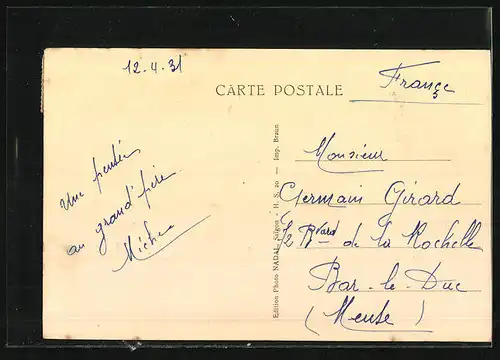 12.4.31
CARTE POSTALE
France
Une pensée
au grand'père
Edition Photo NADAL, Saïgon - H. S. 20 — Imp. Braun
Monsieur
Germain Girard
72 Bvard de la Rochelle
Bar-le-Duc
(Meuse)